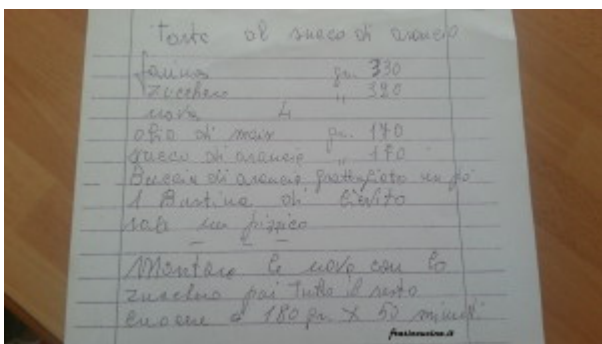 Torta al succo di arancio
farina gr. 330
zucchero " 320
uova 4
olio di mais gr. 170
succo di arancio " 170
Buccia di arancio grattugiato un pò
1 Bustina di lievito
sale un pizzico
Montare le uova con lo
zucchero poi tutto il resto
cuocere a 180 gr. x 50 minuti